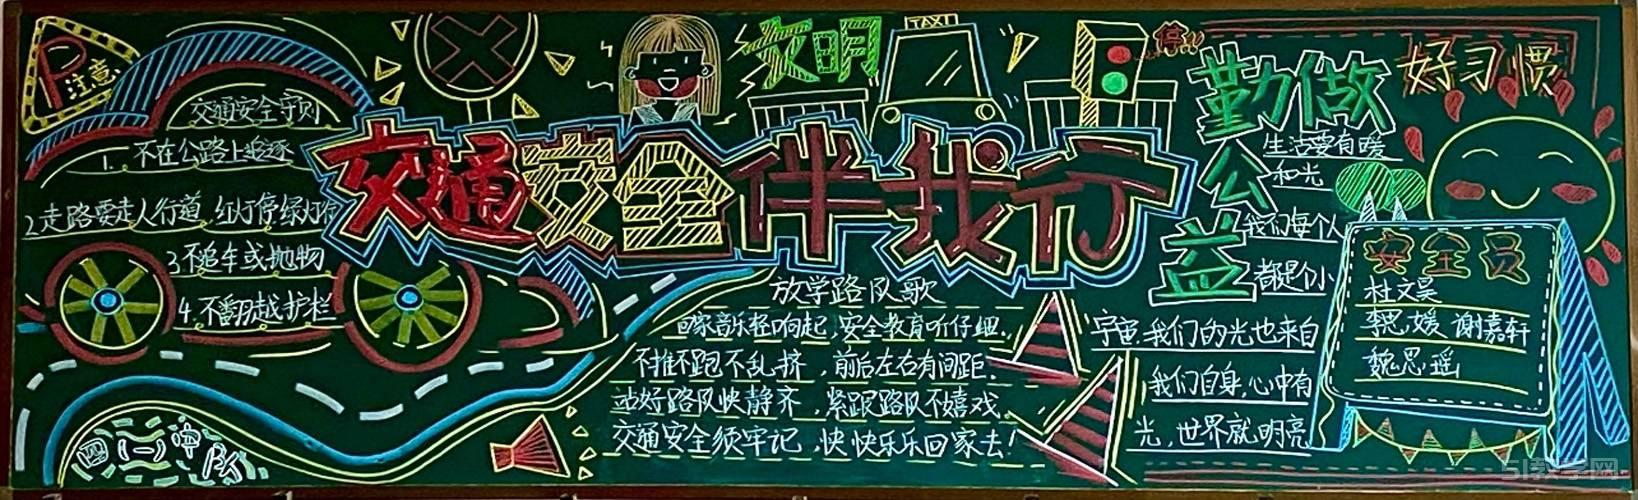 P
注意
交通安全守则
1. 不在公路上追逐
2.走路要走人行道 红灯停绿灯行
3 不追车或抛物
4.不翻越护栏
四(一)中队
文明
TAXI
停!!
交通安全伴我行
放学路队歌
回家音乐轻响起,安全教育听仔细.
不推不跑不乱挤,前后左右有间距.
站好路队快静齐,紧跟路队不嬉戏.
交通安全须牢记,快快乐乐回家去!
勤做
公益
好习惯
生活要有暖
和光
我们每个人
都是个小
宇宙.我们的光也来自
我们自身,心中有
光,世界就明亮
安全员
杜文昊
李思媛 谢嘉轩
魏思瑶
51教学网